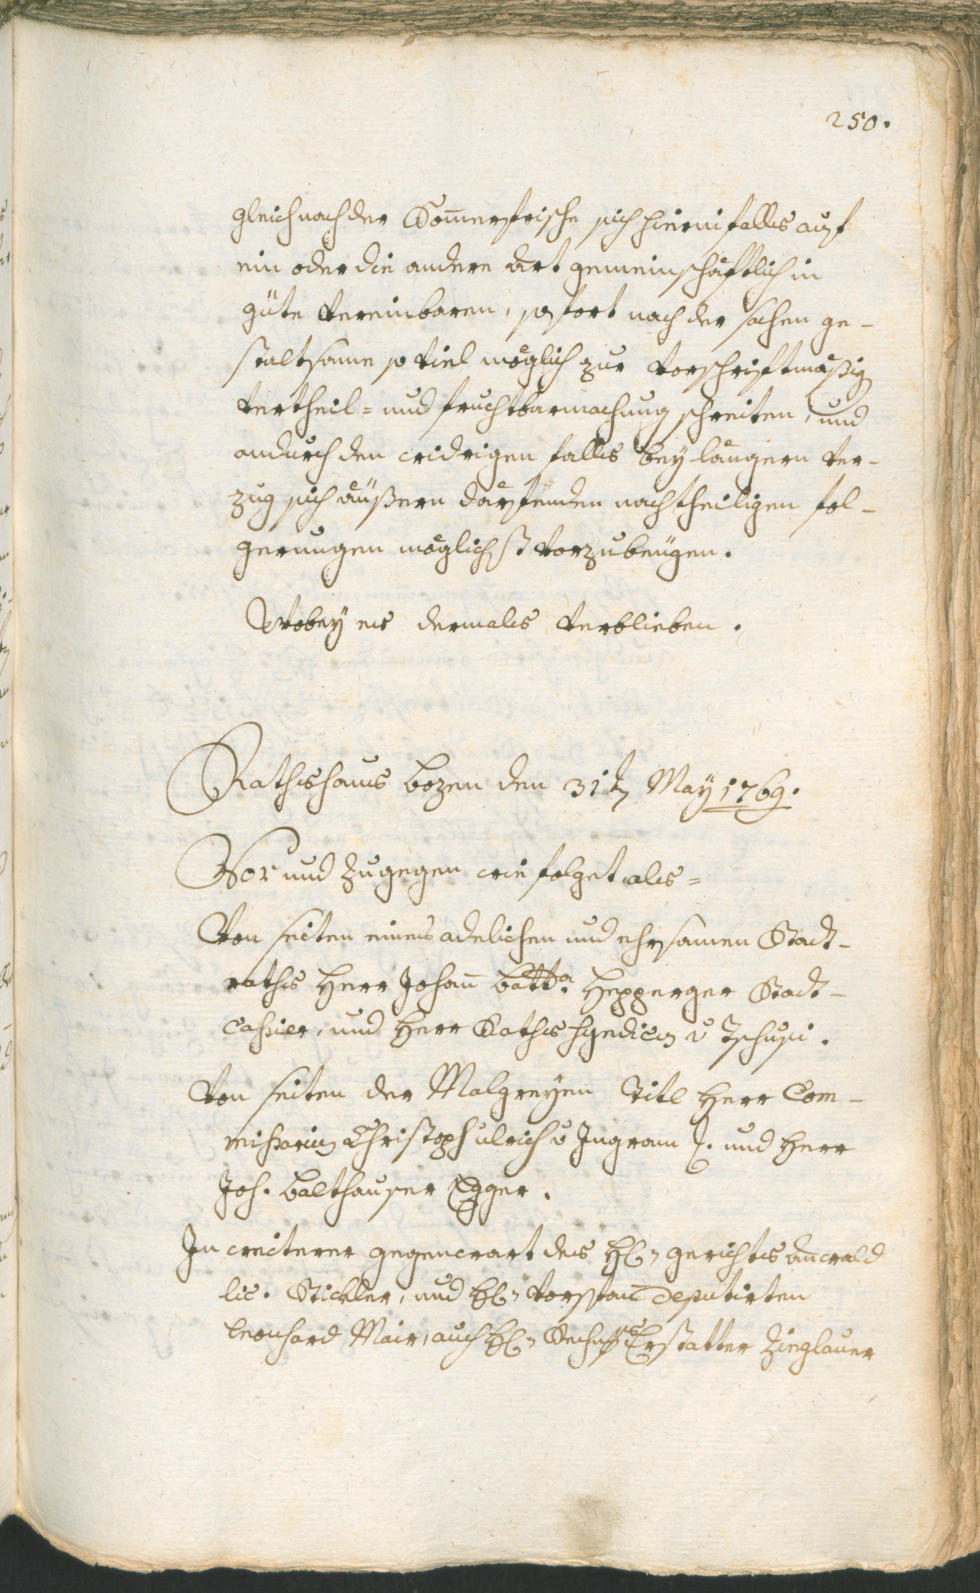 250.
gleich nach der Som̄erfrische sich hierinfalls auf
ein oder die andere Art gemeinschäftlich in
güte vereinbaren, sofort nach der sachen ge-
staltsame so viel möglich zur vorschriftmäßig
vertheil- und fruchtbarmachung schreiten, und
andurch den widrigen falls bey längern ver-
zug sich äußern därfenden nachtheiligen fol-
gerungen möglichst vorzubeugen.
Wobey es dermals verblieben.
Rathshaus bozen den 31t May 1769.
Vor und Zugegen wie folget als=
Von seiten eines adelichen und ehrsamen Stadt-
raths Herr Johan̄ batta Hepperger Stadt-
Cassier, und Herr Raths Syndicus v Tschusi.
Von seiten der Malgreyen Titl Herr Com-
missarius Christoph ulrich v Ingram und Herr
Joh. balthauser Egger.
In weiterer gegenwart des H. gerichts anwald
lic. Stickler, und H. Vorstand Deputirten
leonhard Mair, auch H. Erstatter Zinglauer